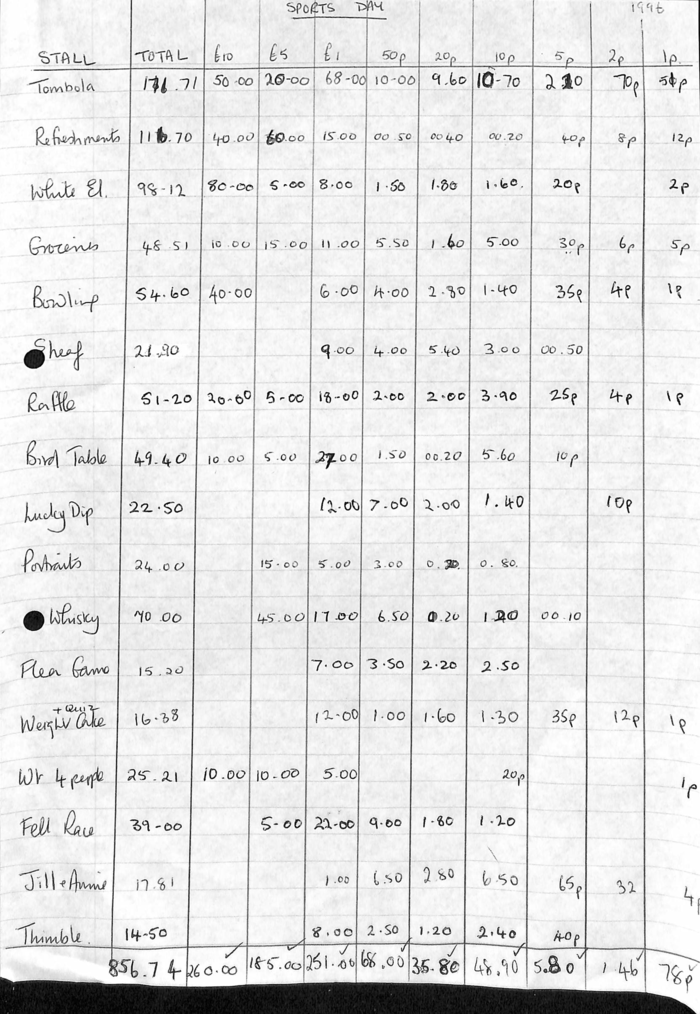 SPORTS DAY 1996
STALL TOTAL £10 £5 £1 50p 20p 10p 5p 2p 1p
Tombola 171.71 50.00 20-00 68-00 10-00 9.60 10-70 2.20 70p 51p
Refreshments 116.70 40.00 60.00 15.00 00.50 00 40 00.20 40p 8p 12p
White El. 98-12 80-00 5-00 8.00 1.50 1.80 1.60. 20p 2p
Groceries 48.51 10.00 15.00 11.00 5.50 1.60 5.00 30p 6p 5p
Bowling 54.60 40-00 6.00 4.00 2.80 1.40 35p 4p 1p
Sheaf 21.90 9.00 4.00 5.40 3.00 00.50
Raffle 51-20 20-00 5-00 18-00 2.00 2.00 3.90 25p 4p 1p
Bird Table 49.40 10.00 5.00 27.00 1.50 00.20 5.60 10p
Lucky Dip 22.50 12.00 7.00 2.00 1.40 10p
Portraits 24.00 15.00 5.00 3.00 0.20 0.80.
Whisky 70.00 45.00 17.00 6.50 0.20 1.20 00.10
Flea Game 15.20 7.00 3.50 2.20 2.50
+ Quiz
Weight Cake 16.38 12-00 1.00 1.60 1.30 35p 12p 1p
Wt 4 people 25.21 10.00 10.00 5.00 20p 1p
Fell Race 39-00 5-00 22-00 9.00 1.80 1.20
Jill + Annie 17.81 1.00 6.50 2 80 6.50 65p 32 4p
Thimble. 14-50 8.00 2.50 1.20 2.40 40p
856.74 260.00 185.00 251.00 68.00 35.80 48.90 5.80 1.46 78p